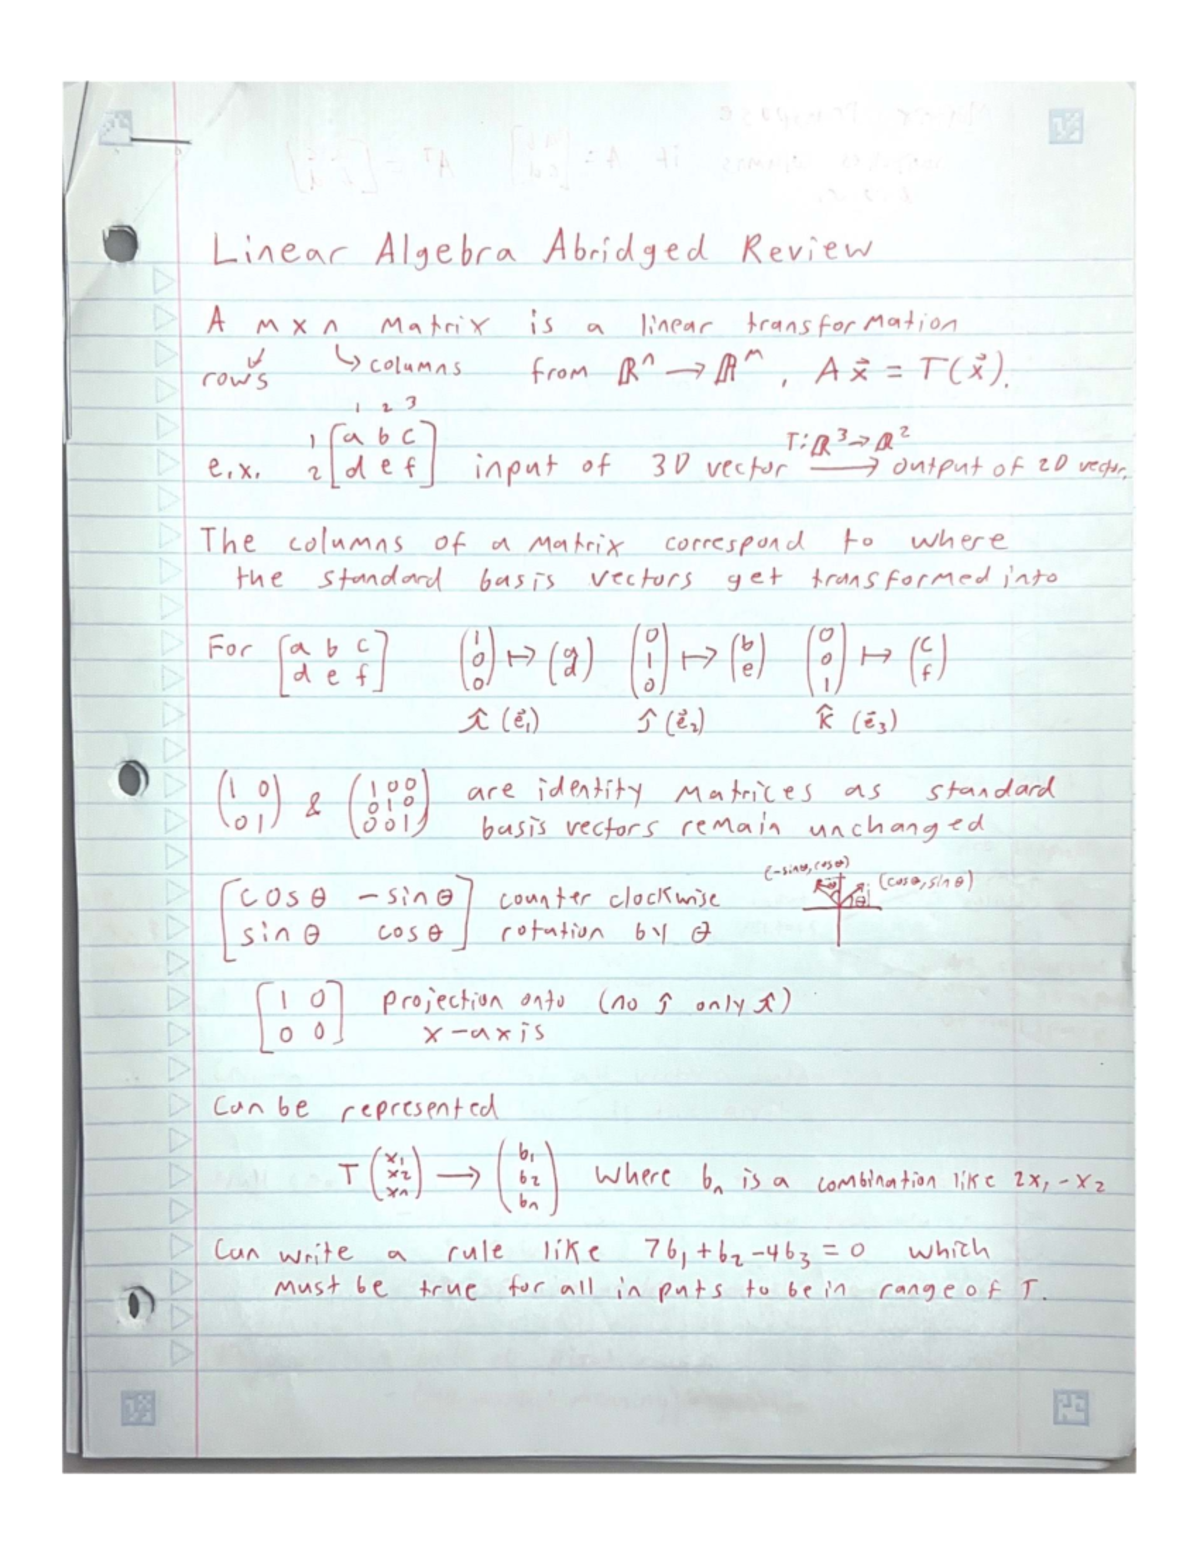 Linear Algebra Abridged Review
A m x n matrix is a linear transformation
rows ↳ columns from ℝⁿ → ℝᵐ, A x⃗ = T(x⃗).
1 2 3
1 [a b c] T: ℝ³→ℝ²
e.x. 2 [d e f] input of 3D vector ⟶ output of 2D vector.
The columns of a matrix correspond to where
the standard basis vectors get transformed into
For [a b c; d e f] (1 0 0) ↦ (a d) (0 1 0) ↦ (b e) (0 0 1) ↦ (c f)
î (e⃗₁) ĵ (e⃗₂) k̂ (e⃗₃)
(1 0; 0 1) & (1 0 0; 0 1 0; 0 0 1) are identity matrices as standard
basis vectors remain unchanged
(-sinθ, cosθ) (cosθ, sinθ)
[cos θ - sin θ counter clockwise
sin θ cos θ] rotation by θ
θ
[1 0 projection onto (no ĵ only î)
0 0] x-axis
Can be represented
T (x₁ x₂ xₙ) ⟶ (b₁ b₂ bₙ) where bₙ is a combination like 2x₁ - x₂
Can write a rule like 7b₁ + b₂ - 4b₃ = 0 which
must be true for all inputs to be in range of T.